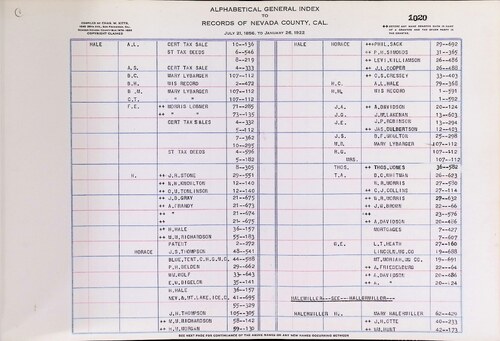 ALPHABETICAL GENERAL INDEX
TO
RECORDS OF NEVADA COUNTY, CAL.
JULY 21, 1856, TO JANUARY 26, 1922
COPYRIGHT CLAIMED
1020
HALE A.L. CERT TAX SALE 10—136
ST TAX DEEDS 6—546
8—221
A.S. CERT TAX SALE 4—333
B.C. MARY LYBARGER 107—112
B.H. HIS RECORD 2—472
E.M. MARY LYBARGER 107—112
C.T. " " 107—112
F.E. ++ MORRIS LOBNER 71—285
++ " " 73—135
CERT TAX SALES 4—332
5—412
7—362
10—295
ST TAX DEEDS 4—596
5—182
8—305
H. ++ J.H. STONE 29—551
++ N.N. KNOULTON 12—140
++ O.M. TOMLINSON 12—140
++ J.D. GRAY 21—673
++ A. FRANDY 21—673
++ " 21—674
++ 24—675
++ H. HALE 36—157
++ M.M. RICHARDSON 55—183
PATENT 2—272
HORACE J.S. THOMPSON 48—541
BLUE, TENT, C.H. & G.M.C. 44—588
P.H. BELDEN 29—662
WM. WOLF 33—643
E.W. BIGELOW 35—141
H. HALE 36—157
NEV. & MT. LAKE, ICE, C. 41—695
55—329
J.H. THOMPSON 105—305
++ M.M. RICHARDSON 58—142
++ H.M. MORGAN 59—130
HALE HORACE ++ PHIL, SACK 29—602
++ P.H. SIMONDS 31—365
++ LEVI, WILLIAMSON 26—486
++ J.L. COOPER 26—488
++ C.S. GRESSEY 33—403
H.C. A.L. HALE 79—368
H.M. HIS RECORD 1—591
1—592
J.A. ++ A. DAVIDSON 20—124
J.G. J.M. LAKENAN 13—603
J.E. J.P. ROBINSON 13—294
++ JAS. CULBERTSON 12—403
J.S. B.F. MOULTON 25—298
M.R. MARY LYBARGER 107—112
R.G. 107—112
MRS. 107—112
THOS. ++ THOS, JONES 36—582
T.A. D.C. WHITMAN 26—623
H.S. MORRIS 27—570
++ C.J. COLLINS 27—114
++ W.B. NORRIS 29—632
++ J.W. BROWN 22—66
++ " 23—576
++ A. DAVIDSON 20—486
MORTGAGES 7—427
7—607
W.E. L.T. HEATH 27—160
LINCOLN, MG. CO 19—688
MT. MORIAH, MG CO. 19—691
++ A. FRIEDENBURG 22—64
++ A. DAVIDSON 20—486
++ A. " 20—124
HALEMILLER---SEE---HALLERMILLER---
HALEMILLER H. MARY HALEMILLER 62—429
++ J.H. OTTE 40—233
++ WM. HUNT 42—173
SEE NEXT PAGE FOR CONTINUANCE OF THE ABOVE NAMES OR ANY NEW NAMES BEGINNING BETWEEN